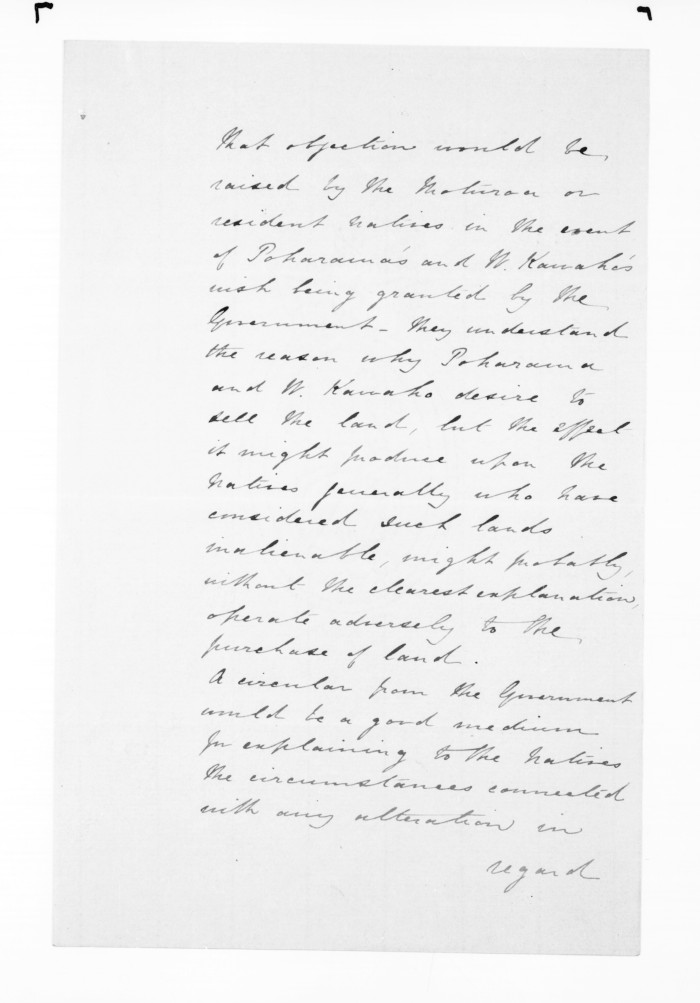 that objection would be
raised by the Moturoa or
resident natives in the event
of Poharama's and W. Kawaho's
wish being granted by the
Government – they understand
the reason why Poharama
and W. Kawaho desire to
sell the land, but the effect
it might produce upon the
natives generally who have
considered such lands
inalienable, might probably,
without the clearest explanation,
operate adversely to the
purchase of land.
A circular from the Government
would be a good medium
for explaining to the natives
the circumstances connected
with any alteration in
regard